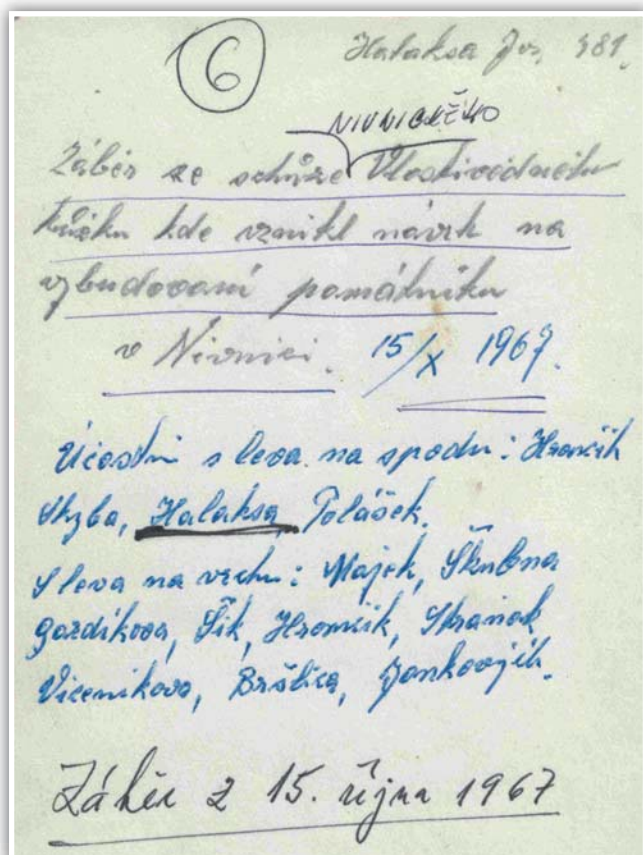 6
Halaksa Jos. 381.
NIVNICKÉHO
Záběr ze schůze Vlastivědného
kůžku kde vznikl návrh na
vybudovaní památníku
v Nivnici. 15/X 1967.
Účastni s leva na spodu: Hrončík
Halaksa, Polášek.
S leva na vrchu: Majek,
Gazdíkova, Šik, Hromčik,
Vicenikova, Bršlica, Jankovjch.
Záběr z 15. října 1967